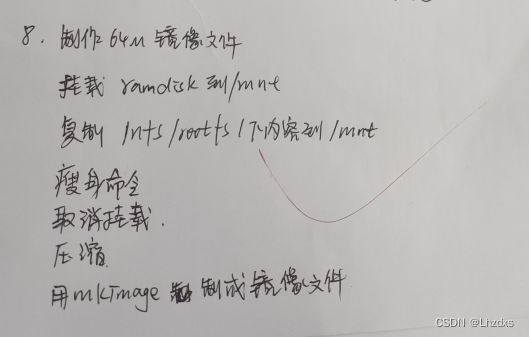 8. 制作64M 镜像文件
挂载 ramdisk 到/mnt
复制 /nfs/rootfs/下内容到 /mnt
瘦身命令
取消挂载.
压缩
用mkimage 制成镜像文件
CSDN @Lhzdxs